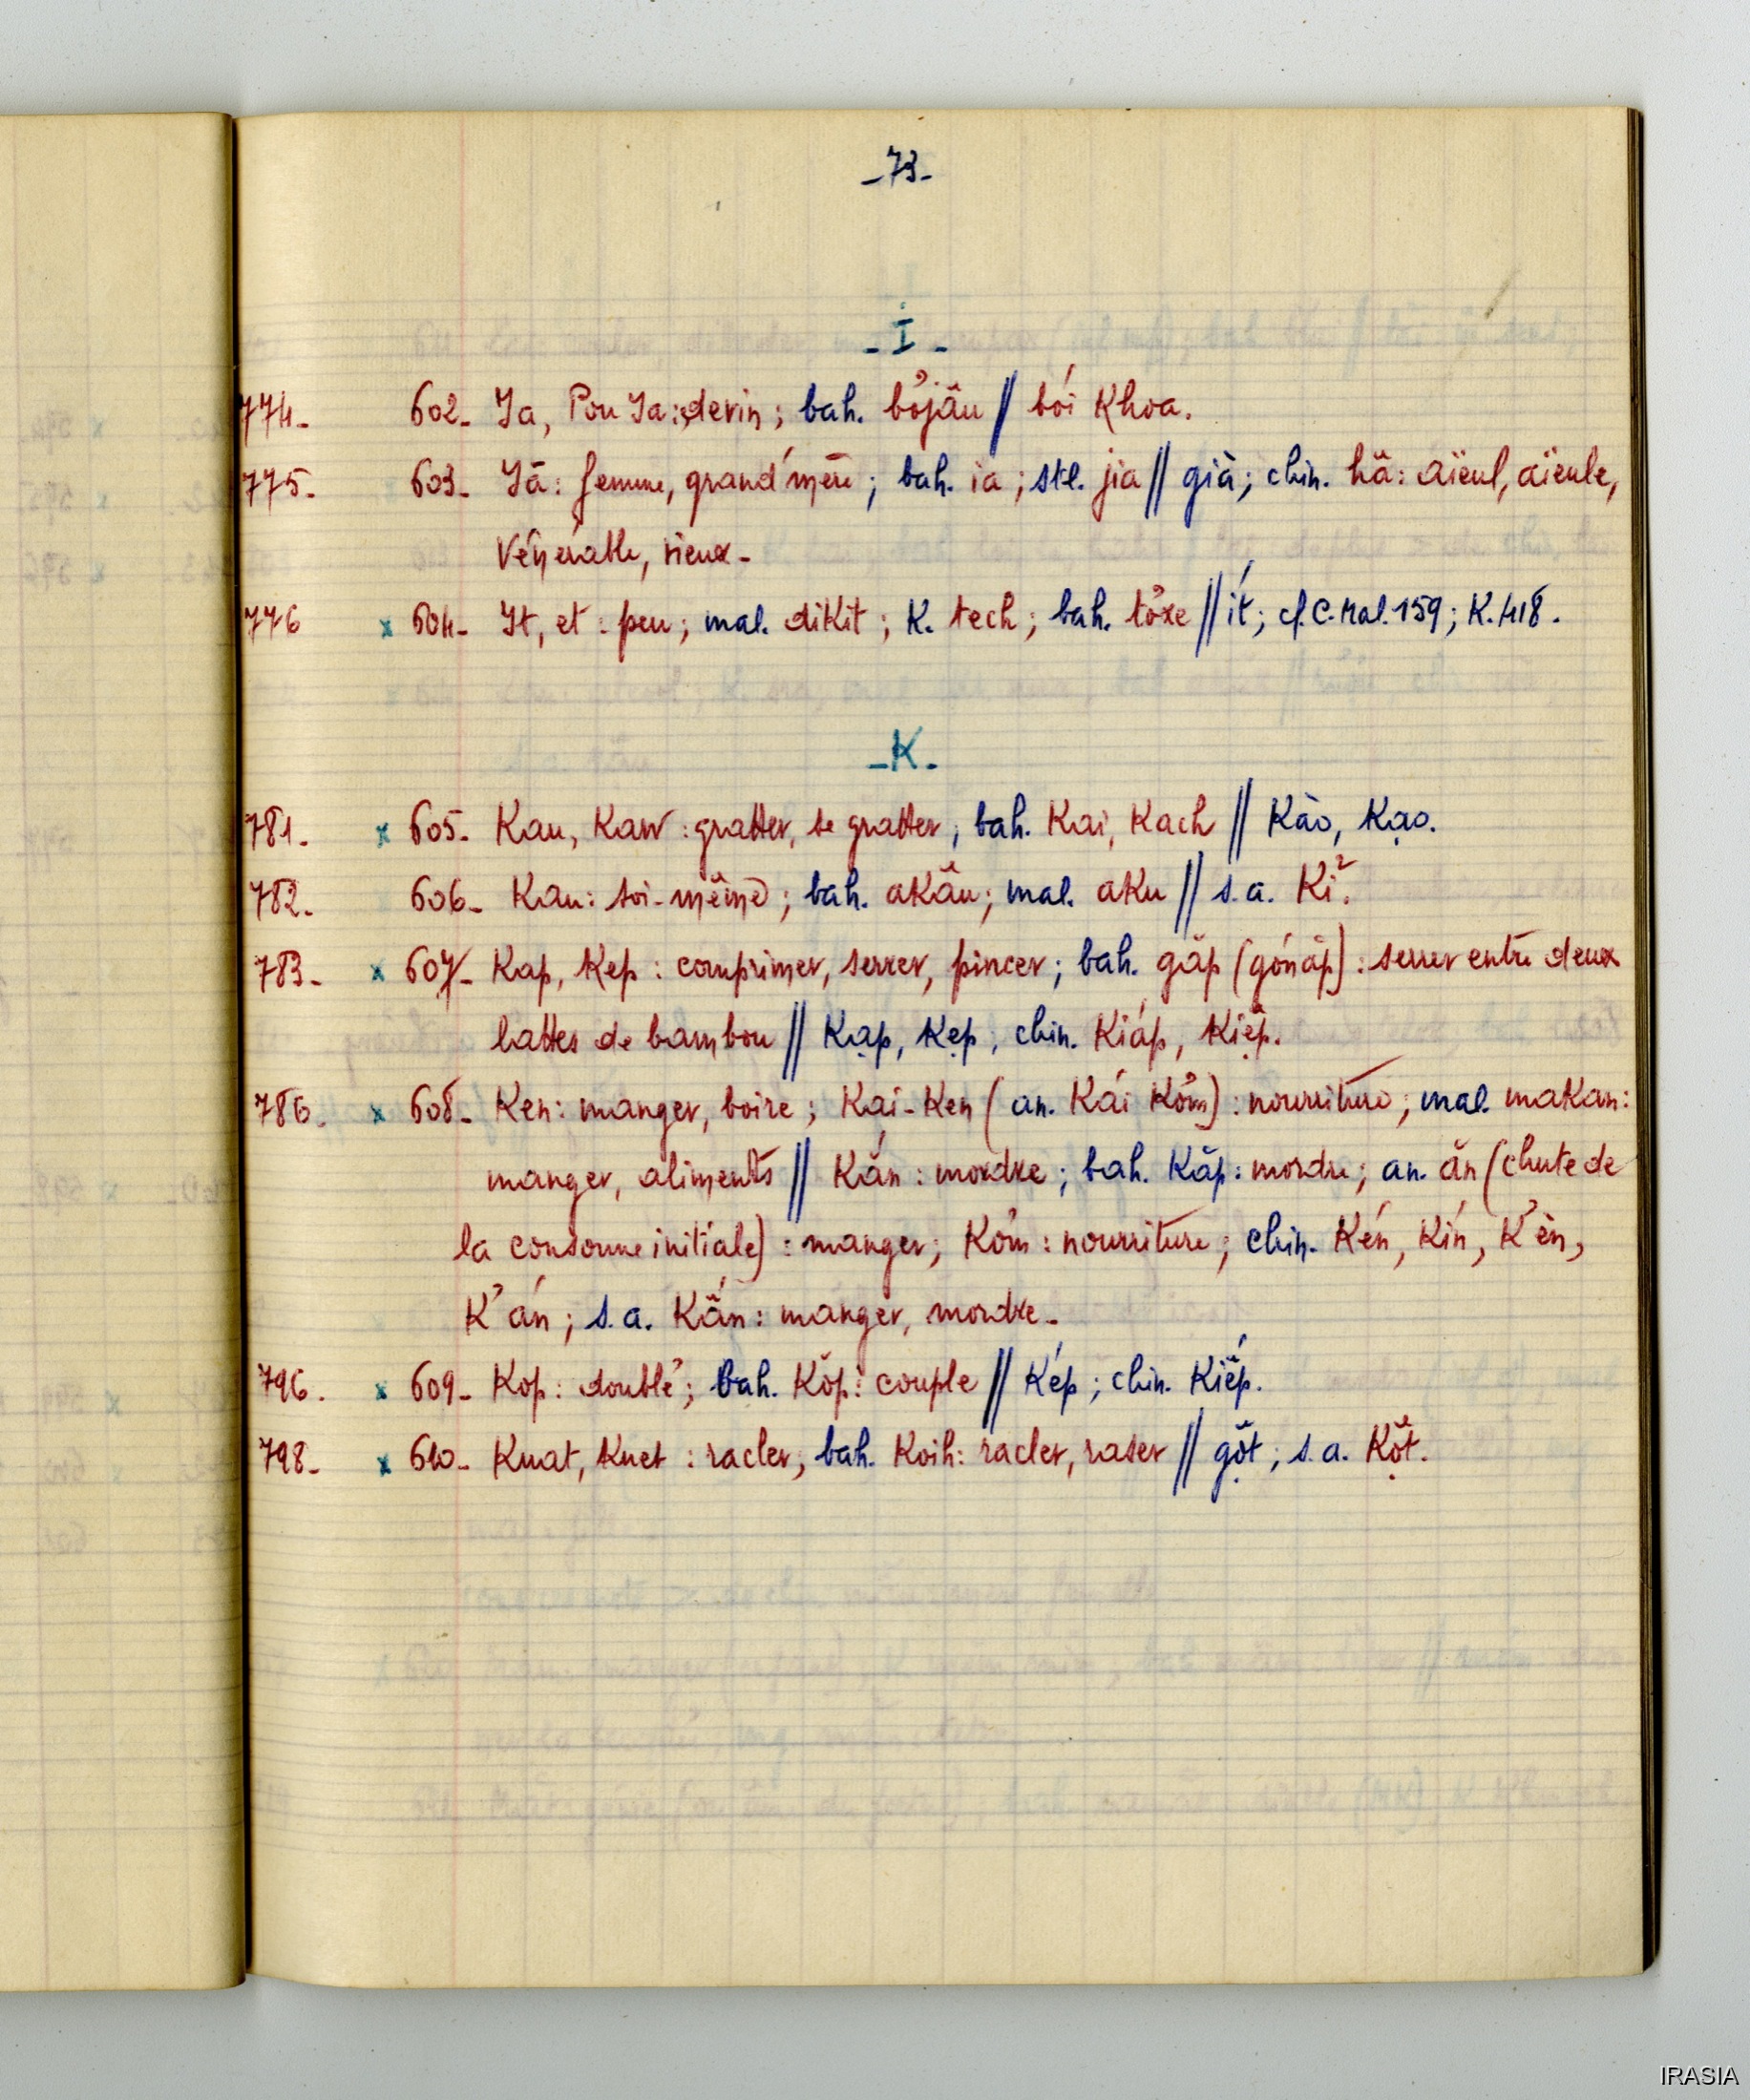 -73-
-I-
774- 602- Ia, Pou Ia: devin; bah. bơ̆jâu // bói Khoa.
775- 603- Iă: femme, grand'mère; bah. ia; stl. jia // già; chin. hã: aïeul, aïeule,
vénérable, vieux-
776 x 604- It, et: peu; mal. dikit; K. tech; bah. tơ̆xe // ít; cf. C. Mal. 159; K. 418.
-K-
781- x 605- Kau, Kaw: gratter, se gratter; bah. Kai, Kach // Kào, Kạo.
782- 606- Kau: soi-même; bah. akâu; mal. aku // s.a. Ki².
783- x 607- Kap, Kep: comprimer, serrer, pincer; bah. găp (gớnăp): serrer entre deux
lattes de bambou // Kạp, Kẹp, chin. Kiáp, Kiệp.
786. x 608- Ken: manger, boire; Kai-Ken (an. Kái Kơ̆m): nourriture; mal. makan:
manger, aliments // Kắn: mordre; bah. Kăp: mordre; an. ăn (chute de
la consonne initiale): manger; Kơm: nourriture; chin. Kén, Kín, K'èn,
K'án; s.a. Kắn: manger, mordre-
796. x 609- Kop: double; bah. Kŏp: couple // Kép; chin. Kiếp.
798- x 610- Kuat, Kuet: racler; bah. Koih: racler, raser // gột; s.a. Kột.
IRASIA